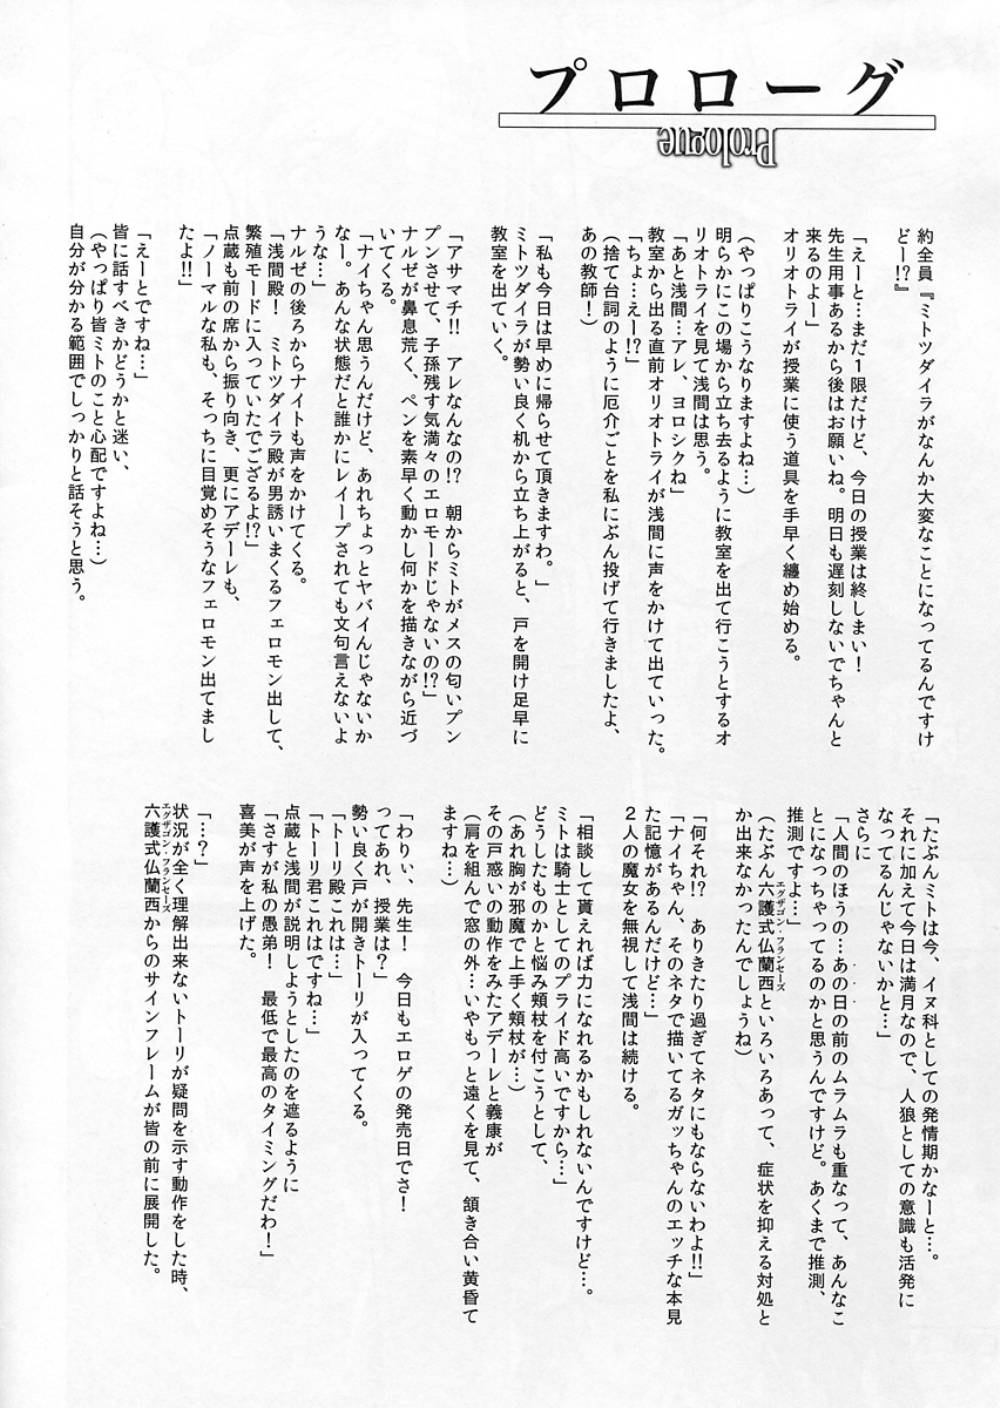 プロローグ
Prologue
約全員『ミトツダイラがなんか大変なことになってるんですけ
どー!?』
「えーと…まだ１限だけど、今日の授業は終しまい!
先生用事あるから後はお願いね。明日も遅刻しないでちゃんと
来るのよー」
オリオトライが授業に使う道具を手早く纏め始める。
(やっぱりこうなりますよね…)
明らかにこの場から立ち去るように教室を出て行こうとするオ
リオトライを見て浅間は思う。
「あと浅間…アレ、ヨロシクね」
教室から出る直前オリオトライが浅間に声をかけて出ていった。
「ちょ…えー!?」
(捨て台詞のように厄介ごとを私にぶん投げて行きましたよ、
あの教師!)
「私も今日は早めに帰らせて頂きますわ。」
ミトツダイラが勢い良く机から立ち上がると、戸を開け足早に
教室を出ていく。
「アサマチ!! アレなんなの!? 朝からミトがメスの匂いプン
プンさせて、子孫残す気満々のエロモードじゃないの!?」
ナルゼが鼻息荒く、ペンを素早く動かし何かを描きながら近づ
いてくる。
「ナイちゃん思うんだけど、あれちょっとヤバイんじゃないか
なー。あんな状態だと誰かにレイプされても文句言えないよ
うな…」
ナルゼの後ろからナイトも声をかけてくる。
「浅間殿! ミトツダイラ殿が男誘いまくるフェロモン出して、
繁殖モードに入っていたでござるよ!?」
点蔵も前の席から振り向き、更にアデーレも、
「ノーマルな私も、そっちに目覚めそうなフェロモン出てまし
たよ!!」
「えーとですね…」
皆に話すべきかどうかと迷い、
(やっぱり皆ミトのこと心配ですよね…)
自分が分かる範囲でしっかりと話そうと思う。
「たぶんミトは今、イヌ科としての発情期かなーと…。
それに加えて今日は満月なので、人狼としての意識も活発に
なってるんじゃないかと…」
さらに
「人間のほうの…あの日の前のムラムラも重なって、あんなこ
とになっちゃってるのかと思うんですけど。あくまで推測、
推測ですよ…」
(たぶん六護式仏蘭西といろいろあって、症状を抑える対処と
エグザゴン・フランセーズ
か出来なかったんでしょうね)
「何それ!? ありきたり過ぎてネタにもならないわよ!!」
「ナイちゃん、そのネタで描いてるガッちゃんのエッチな本見
た記憶があるんだけど…」
２人の魔女を無視して浅間は続ける。
「相談して貰えれば力になれるかもしれないんですけど…。
ミトは騎士としてのプライド高いですから…」
どうしたものかと悩み頬杖を付こうとして、
(あれ胸が邪魔で上手く頬杖が…)
その戸惑いの動作をみたアデーレと義康が
(肩を組んで窓の外…いやもっと遠くを見て、頷き合い黄昏て
ますね…)
「わりぃ、先生! 今日もエロゲの発売日でさ!
ってあれ、授業は?」
勢い良く戸が開きトーリが入ってくる。
「トーリ殿これは…」
「トーリ君これはですね…」
点蔵と浅間が説明しようとしたのを遮るように
「さすが私の愚弟! 最低で最高のタイミングだわ!」
喜美が声を上げた。
「…?」
状況が全く理解出来ないトーリが疑問を示す動作をした時、
エグザゴン・フランセーズ
六護式仏蘭西からのサインフレームが皆の前に展開した。